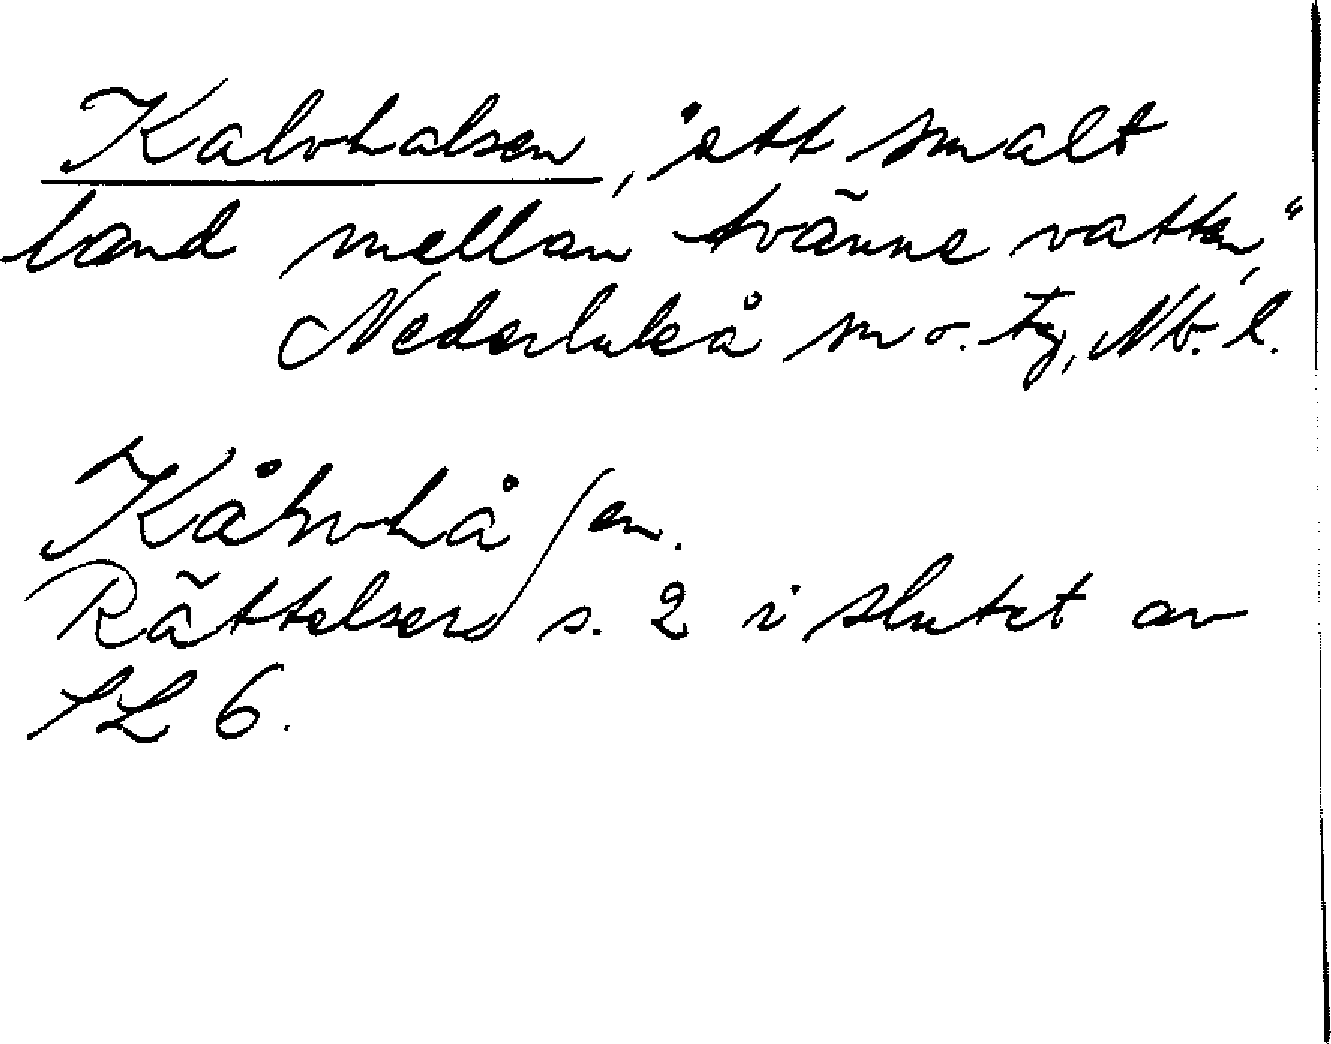 Kalvhalsen, "ett smalt
land mellan tvänne vatten,"
Nederluleå sn o. tg, Nb. l.
Kålvhå/en.
Rättelser s. 2 i slutet av
SL 6.